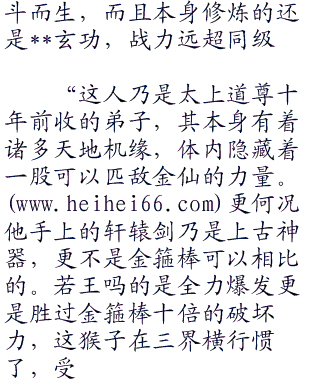 斗而生，而且本身修炼的还
是**玄功，战力远超同级

“这人乃是太上道尊十
年前收的弟子，其本身有着
诸多天地机缘，体内隐藏着
一股可以匹敌金仙的力量。
(www.heihei66.com)更何况
他手上的轩辕剑乃是上古神
器，更不是金箍棒可以相比
的。若王吗的是全力爆发更
是胜过金箍棒十倍的破坏
力，这猴子在三界横行惯
了，受